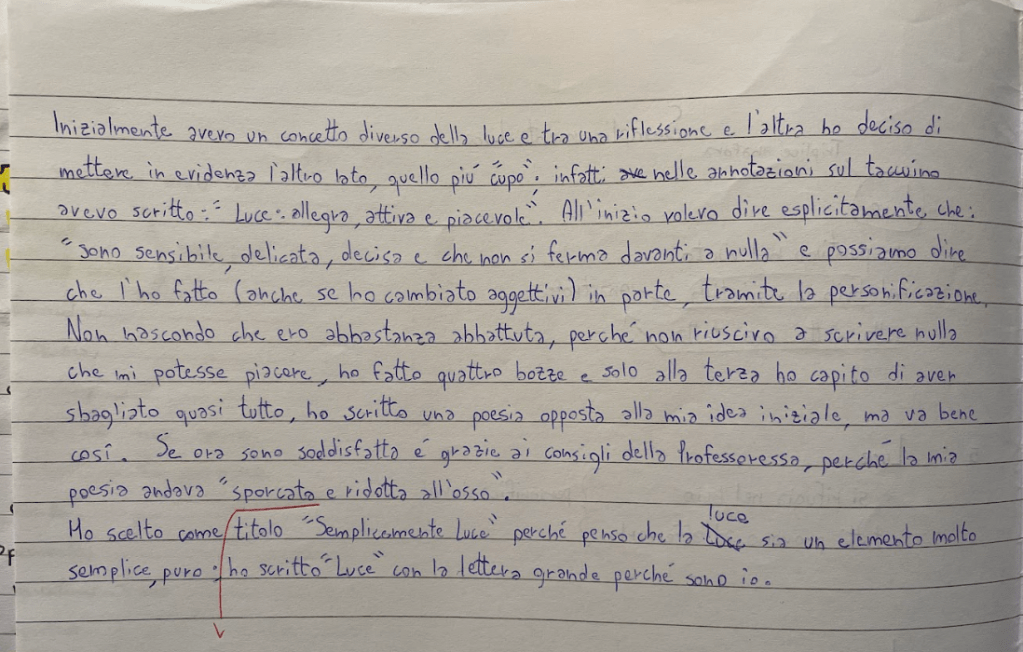 Inizialmente avevo un concetto diverso della luce e tra una riflessione e l'altra ho deciso di
mettere in evidenza l'altro lato, quello più "cupo"; infatti ave nelle annotazioni sul taccuino
avevo scritto: " Luce: allegra, attiva e piacevole". All'inizio volevo dire esplicitamente che:
"sono sensibile, delicata, decisa e che non si ferma davanti a nulla" e possiamo dire
che l'ho fatto (anche se ho cambiato aggettivi) in parte, tramite la personificazione.
Non nascondo che ero abbastanza abbattuta, perché non riuscivo a scrivere nulla
che mi potesse piacere, ho fatto quattro bozze e solo alla terza ho capito di aver
sbagliato quasi tutto, ho scritto una poesia opposta alla mia idea iniziale, ma va bene
così. Se ora sono soddisfatta é grazie ai consigli della Professoressa, perché la mia
poesia andava "sporcata e ridotta all'osso".
luce
Ho scelto come titolo "Semplicemente Luce" perché penso che la Luce sia un elemento molto
semplice, puro; ho scritto "Luce" con la lettera grande perché sono io.